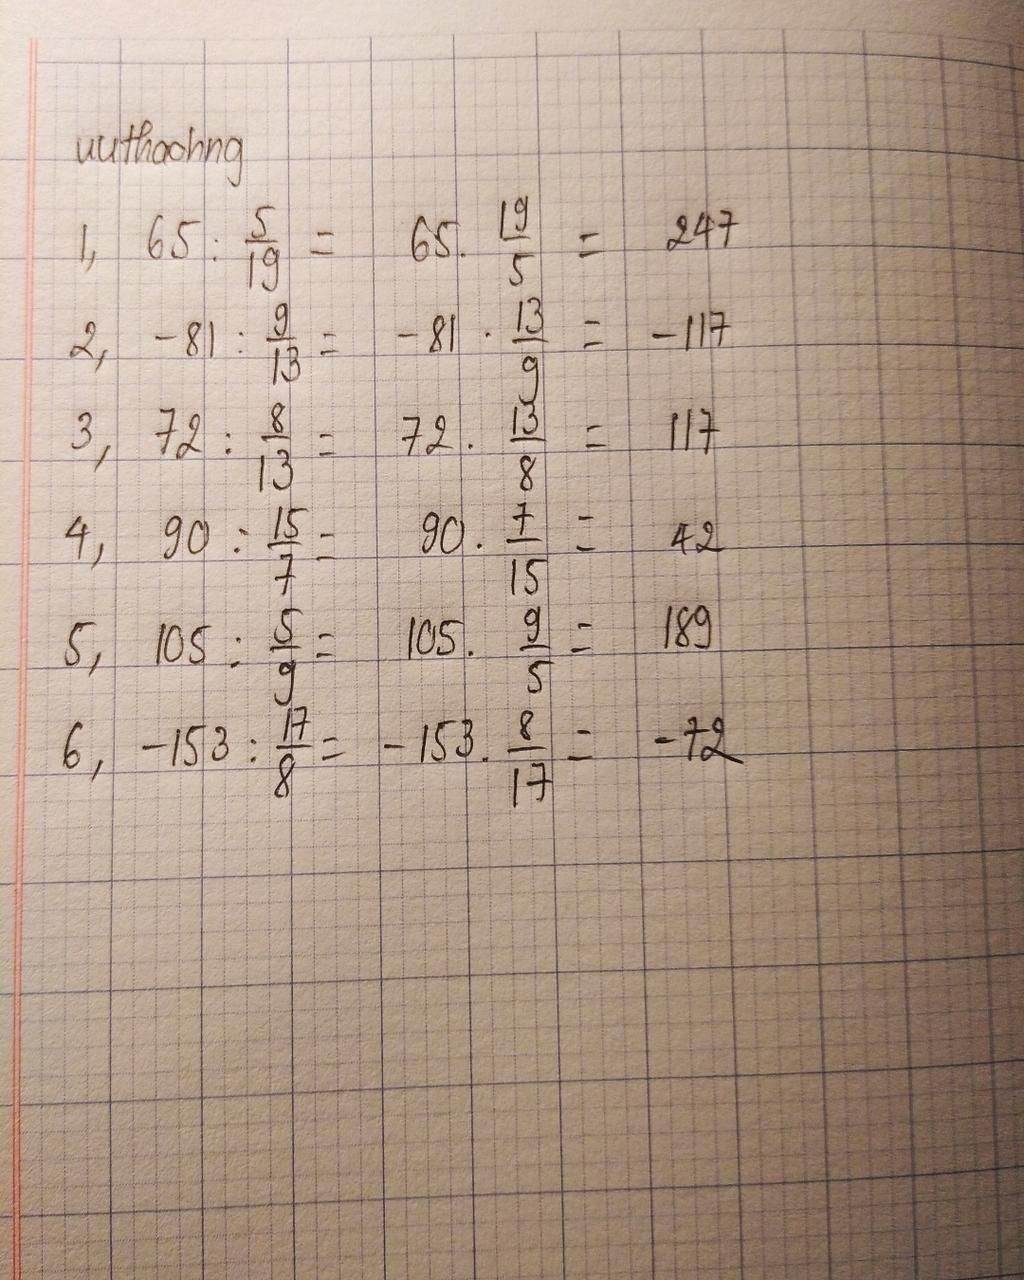 uuthaohng
1, 65 : 5/19 = 65 . 19/5 = 247
2, -81 : 9/13 = -81 . 13/9 = -117
3, 72 : 8/13 = 72 . 13/8 = 117
4, 90 : 15/7 = 90 . 7/15 = 42
5, 105 : 5/9 = 105 . 9/5 = 189
6, -153 : 17/8 = -153 . 8/17 = -72